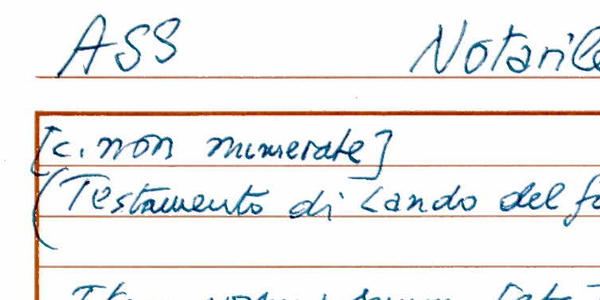 ASS Notarile
[c. non numerate]
(Testamento di Lando del
Item